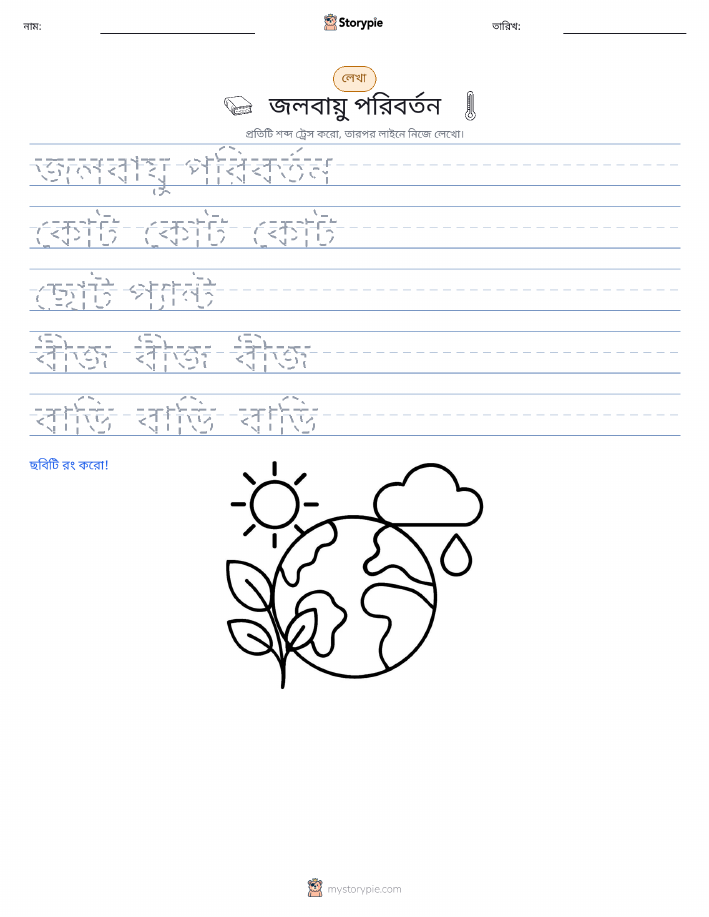 নাম:
Storypie
তারিখ:
লেখা
জলবায়ু পরিবর্তন
প্রতিটি শব্দ ট্রেস করো, তারপর লাইনে নিজে লেখো।
জলবায়ু পরিবর্তন
কোট কোট কোট
ছোট প্যান্ট
বীজ বীজ বীজ
বাড়ি বাড়ি বাড়ি
ছবিটি রং করো!
mystorypie.com